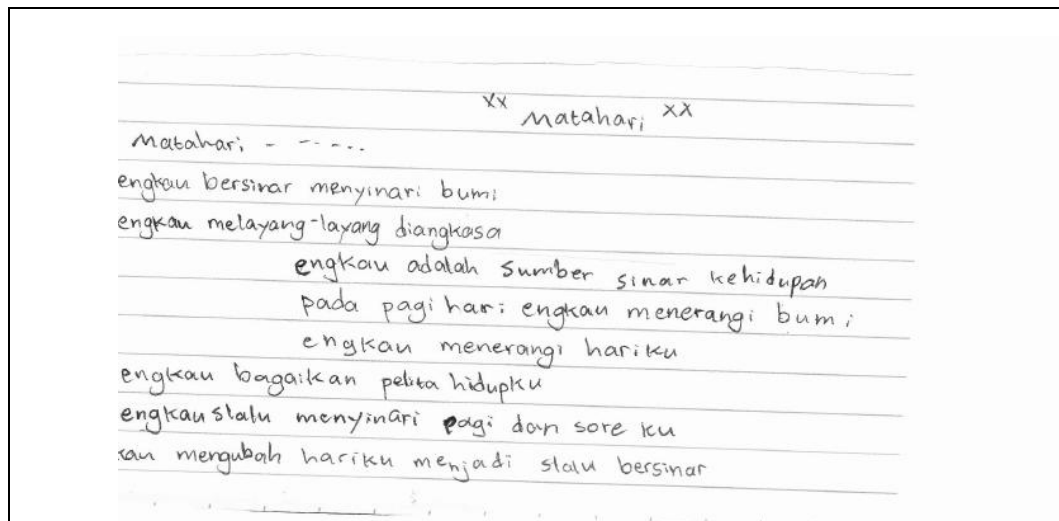 xx Matahari xx
Matahari - - - - . .
engkau bersinar menyinari bumi
engkau melayang-layang diangkasa
engkau adalah sumber sinar kehidupan
pada pagi hari engkau menerangi bumi
engkau menerangi hariku
engkau bagaikan pelita hidupku
engkau slalu menyinari pagi dan sore ku
kau mengubah hariku menjadi slalu bersinar